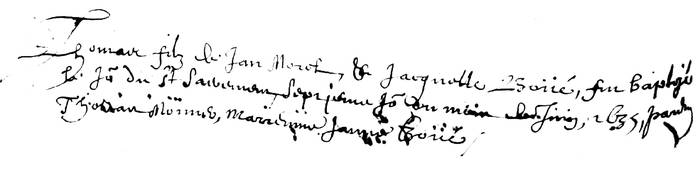 Thomas filz de Jan Moret, & Jacquelle Boüé, fut baptizé
le Jo du St Sacremen, septieme Jo du mois de Juin, 1635, parain
Thomas Moiner, Marienne Janne Boüé